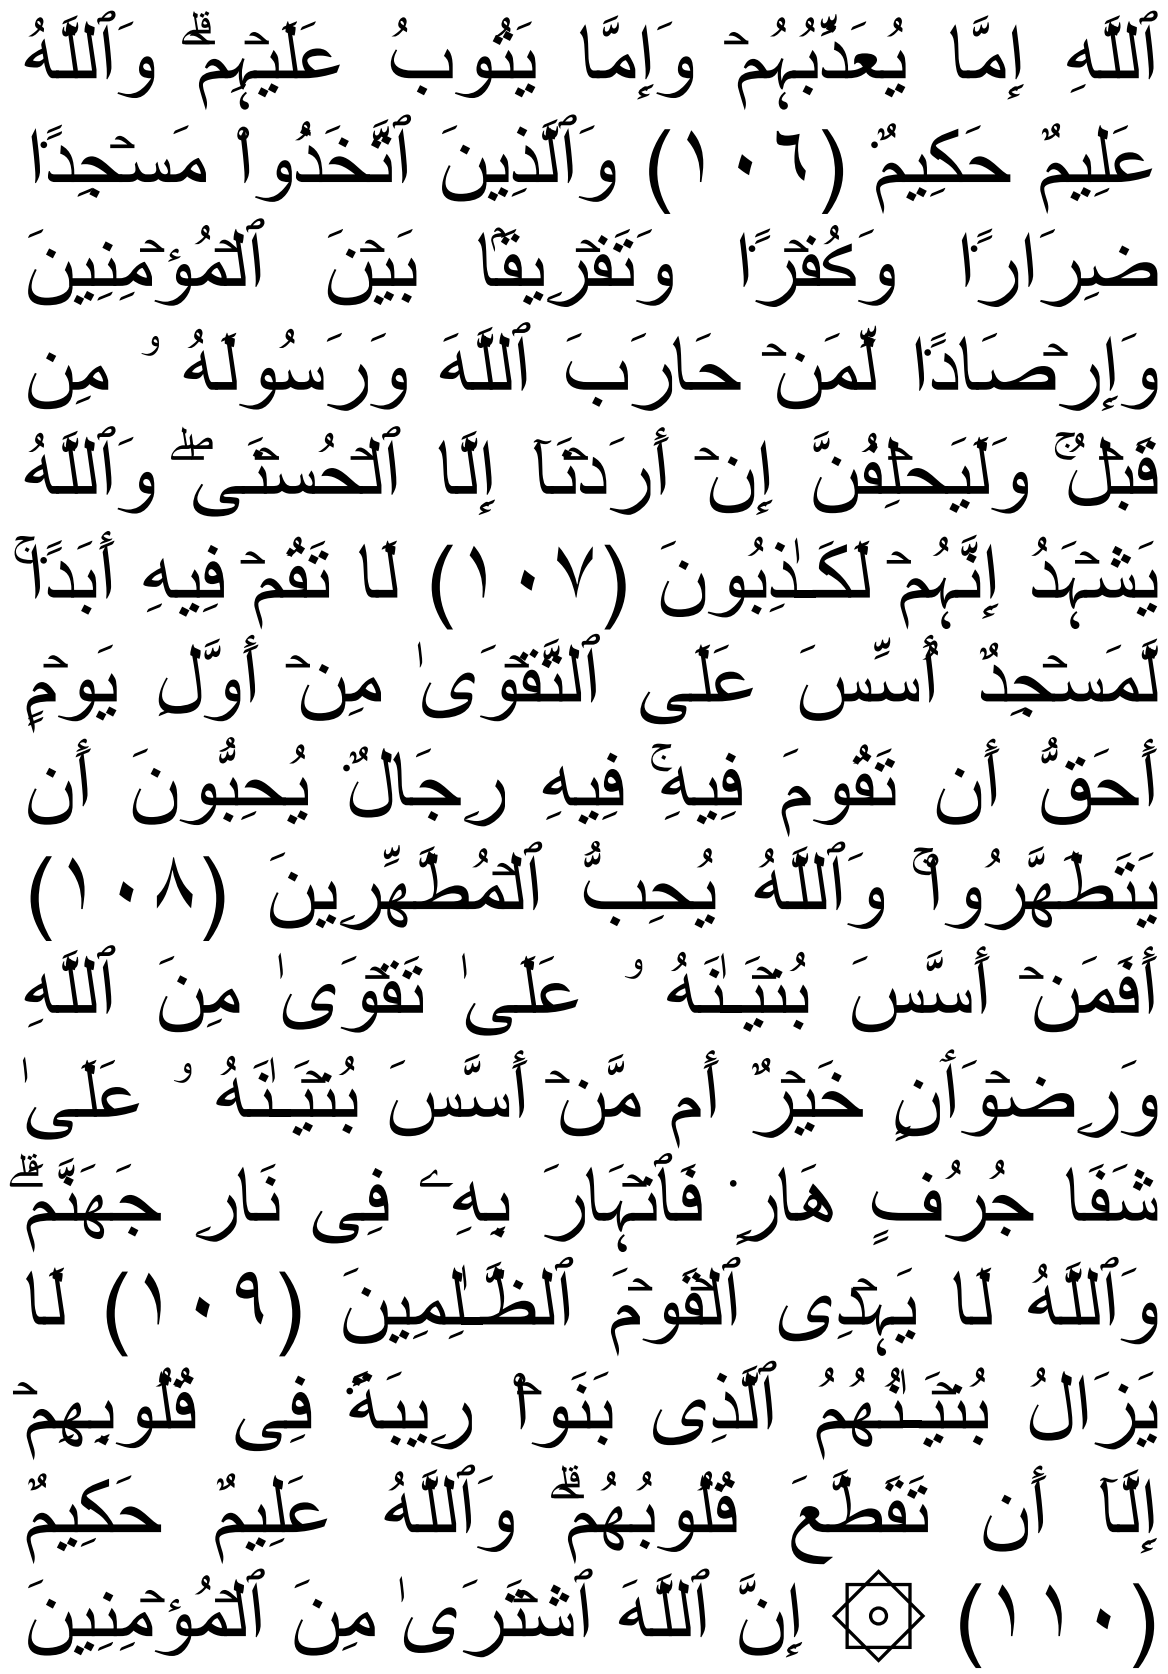 ٱللَّهِ إِمَّا يُعَذِّبُہُمۡ وَإِمَّا يَتُوبُ عَلَيۡہِمۡ‌ۗ وَٱللَّهُ
عَلِيمٌ حَكِيمٌ۬ (١٠٦) وَٱلَّذِينَ ٱتَّخَذُواْ مَسۡجِدً۬ا
ضِرَارً۬ا وَڪُفۡرً۬ا وَتَفۡرِيقَۢا بَيۡنَ ٱلۡمُؤۡمِنِينَ
وَإِرۡصَادً۬ا لِّمَنۡ حَارَبَ ٱللَّهَ وَرَسُولَهُ ۥ مِن
قَبۡلُ‌ۚ وَلَيَحۡلِفُنَّ إِنۡ أَرَدۡنَآ إِلَّا ٱلۡحُسۡنَى‌ۖ وَٱللَّهُ
يَشۡہَدُ إِنَّہُمۡ لَكَـٰذِبُونَ (١٠٧) لَا تَقُمۡ فِيهِ أَبَدً۬ا‌ۚ
لَّمَسۡجِدٌ أُسِّسَ عَلَى ٱلتَّقۡوَىٰ مِنۡ أَوَّلِ يَوۡمٍ
أَحَقُّ أَن تَقُومَ فِيهِ‌ۚ فِيهِ رِجَالٌ۬ يُحِبُّونَ أَن
يَتَطَهَّرُواْ‌ۚ وَٱللَّهُ يُحِبُّ ٱلۡمُطَّهِّرِينَ (١٠٨)
أَفَمَنۡ أَسَّسَ بُنۡيَـٰنَهُ ۥ عَلَىٰ تَقۡوَىٰ مِنَ ٱللَّهِ
وَرِضۡوَٲنٍ خَيۡرٌ أَم مَّنۡ أَسَّسَ بُنۡيَـٰنَهُ ۥ عَلَىٰ
شَفَا جُرُفٍ هَارٍ۬ فَٱنۡہَارَ بِهِۦ فِى نَارِ جَهَنَّمَ‌ۗ
وَٱللَّهُ لَا يَہۡدِى ٱلۡقَوۡمَ ٱلظَّـٰلِمِينَ (١٠٩) لَا
يَزَالُ بُنۡيَـٰنُهُمُ ٱلَّذِى بَنَوۡاْ رِيبَةً۬ فِى قُلُوبِهِمۡ
إِلَّآ أَن تَقَطَّعَ قُلُوبُهُمۡ‌ۗ وَٱللَّهُ عَلِيمٌ حَكِيمٌ
(١١٠) ۞ إِنَّ ٱللَّهَ ٱشۡتَرَىٰ مِنَ ٱلۡمُؤۡمِنِينَ